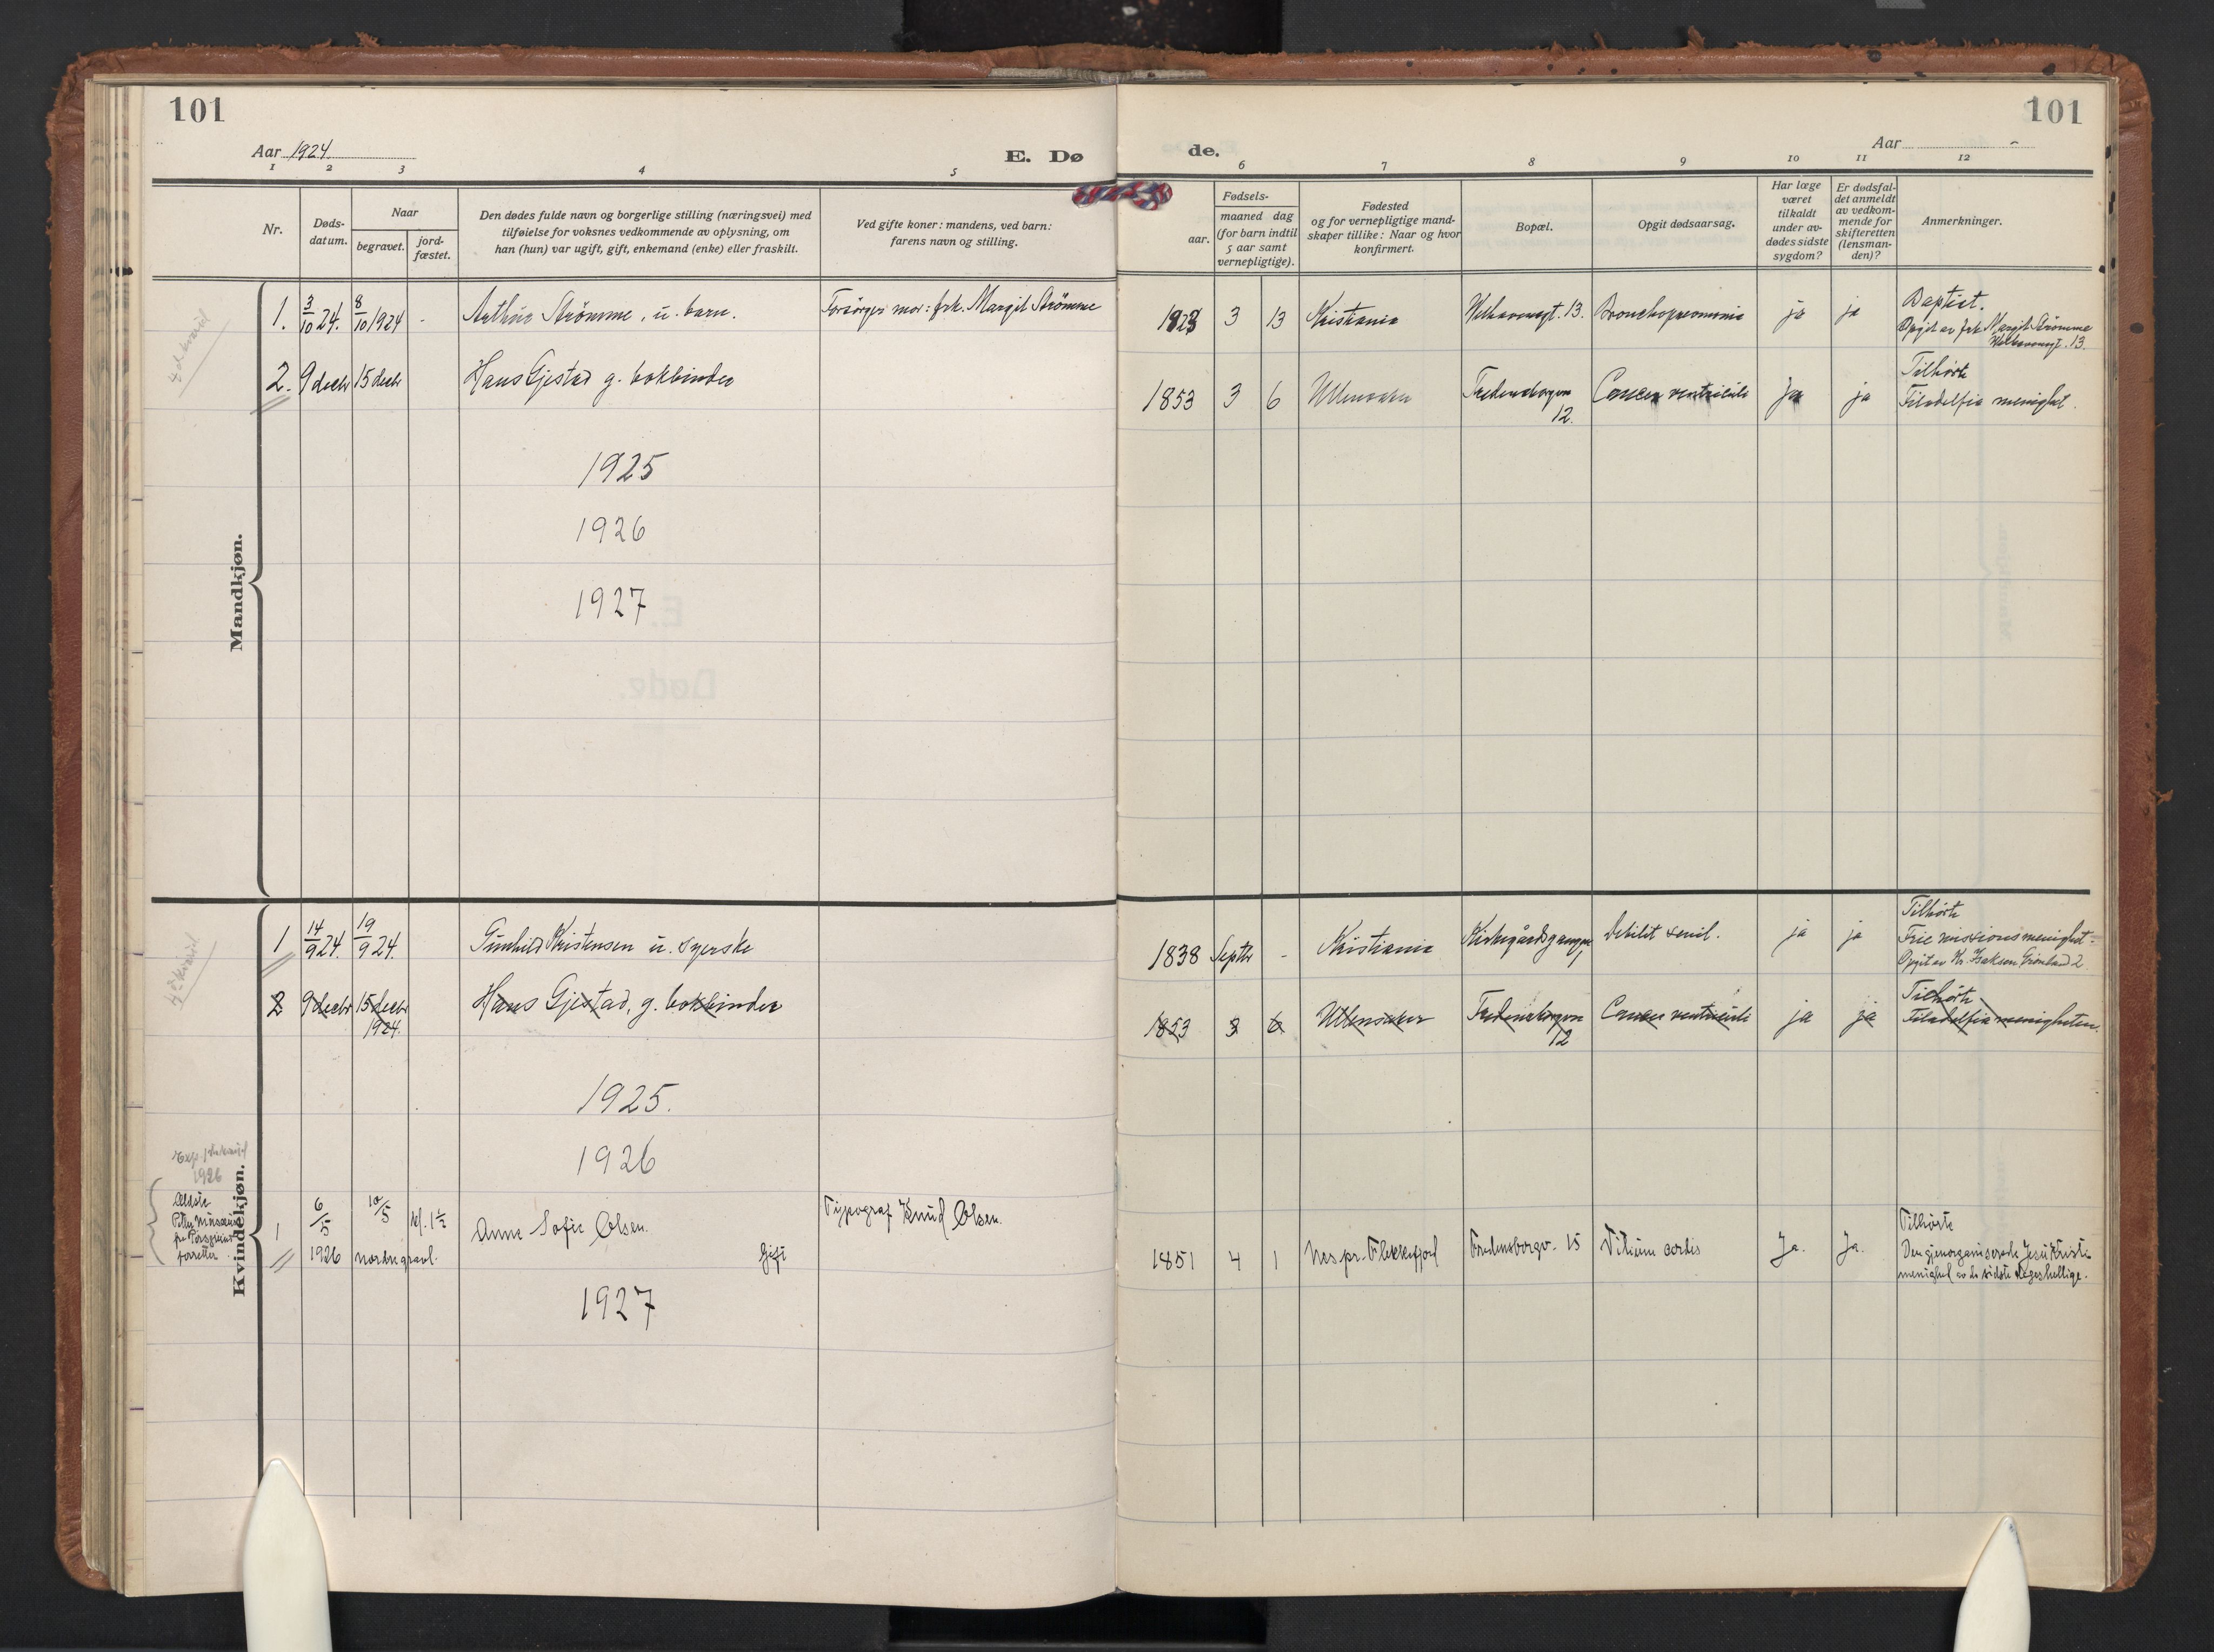 101
Aar 1924.
E. Dø
1 2 3 4 5
Nr.
Døds-
datum.
Naar
begravet.
jord-
fæstet.
Den dødes fulde navn og borgerlige stilling (næringsvei) med
tilføielse for voksnes vedkommende av oplysning, om
han (hun) var ugift, gift, enkemand (enke) eller fraskilt.
Ved gifte koner: mandens, ved barn:
farens navn og stilling.
Mandkjøn.
1. 3/10 24. 8/10 1924 - Arthur Strömme, u. barn. Forsørger mor: frk. Margit Strömme
2. 9 decbr 15 decbr Hans Gjestad g. bokbinder
1925
1926
1927
Kvindekjøn.
1 14/9 24. 19/9 24. Gunhild Kristensen u. syerske
2 9 decbr 15 decbr Hans Gjestad, g. bokbinder
1924.
1925.
1926
1926
Ældste
1 6/5 10/5 kl. 1 1/2 Anne Sofie Olsen. Typograf Knud Olsen.
1926 nordregravl. Gift
1927
101
de.
Aar
6 7 8 9 10 11 12
aar.
Fødsels-
maaned dag
(for barn indtil
5 aar samt
vernepligtige).
Fødested
og for vernepligtige mand-
skaper tillike: Naar og hvor
konfirmert.
Bopæl.
Opgit dødsaarsag.
Har læge
været
tilkaldt
under av-
dødes sidste
sygdom?
Er dødsfal-
det anmeldt
av vedkom-
mende for
skifteretten
(lensman-
den)?
Anmerkninger.
1923 3 13 Kristiania Welhavensgt. 13. Bronchopneumonia ja ja Baptist.
Opgit av frk. Margit Strömme
Welhavensgt. 13.
1853 3 6 Ullensaker Fredensborgvn 12. Cancer ventriculi ja ja Tilhörte
Filadelfia menighet.
1838 Septbr - Kristiania Kirkegårdsgangen 1 Debilit senil. ja ja Tilhörte
Frie missionsmenighet.
Opgit av Kr. Isaksen Grönland 2
1853 3 6 Ullensaker Fredensborgvn 12 Cancer ventriculi ja ja Tilhörte
Filadelfia menigheten.
1851 4 1 Nes pr. Flekkefjord Fredensborgv. 15 Vitium cordis Ja. Ja. Tilhörte
Den gjenorganiserede Jesu Kristi
menighet av de sidste dages hellige.